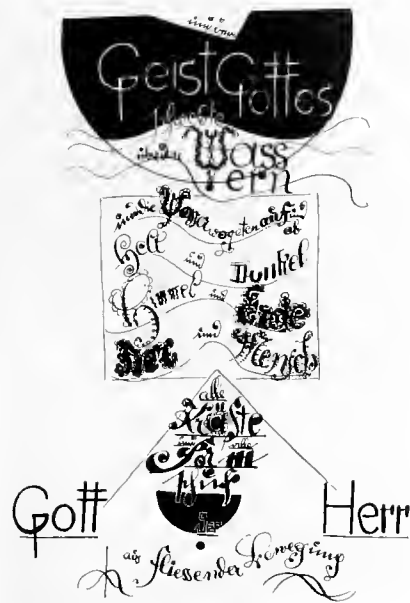 und der
Geist Gottes
schwebte
über den Wass
ern
und die Wogen wogten auf und ab
Hell und Dunkel
Himmel und Erde
Tier und Mensch
alle
Kräfte
Form
schuf
Gott Herr
aus fliessender Bewegung